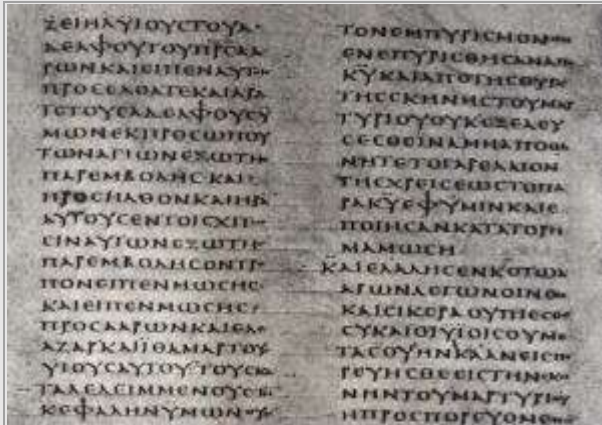 ΖΕΙΗΛΥΙΟΥCΤΟΥΑ
ΔΕΛΦΟΥΤΟΥΠΡCΑΑ
ΡΩΝΚΑΙΕΙΠΕΝΑΥΤΟΙ
ΠΡΟCΕΛΘΑΤΕΚΑΙΑΡΑ
ΤΕΤΟΥCΑΔΕΛΦΟΥCΥ
ΜΩΝΕΚΠΡΟCΩΠΟΥ
ΤΩΝΑΓΙΩΝΕΞΩΤΗC
ΠΑΡΕΜΒΟΛΗCΚΑΙ
ΠΡΟCΗΛΘΟΝΚΑΙΗΡΑ
ΑΥΤΟΥCΕΝΤΟΙCΧΙΤΩ
CΙΝΑΥΤΩΝΕΞΩΤΗC
ΠΑΡΕΜΒΟΛΗCΟΝΤΡΟ
ΠΟΝΕΙΠΕΝΜΩCΗC
ΚΑΙΕΙΠΕΝΜΩCΗC
ΠΡΟCΑΑΡΩΝΚΑΙΕΛΕ
ΑΖΑΡΚΑΙΪΘΑΜΑΡΤΟΥC
ΥΙΟΥCΑΥΤΟΥΤΟΥCΚΑ
ΤΑΛΕΛΕΙΜΜΕΝΟΥC
ΚΕΦΑΛΗΝΥΜΩΝΟΥΚ
ΤΟΝΕΜΠΥΡΙCΜΟΝΟΝ
ΕΝΕΠΥΡΙCΘΗCΑΝΑΠΟ
ΚΥΚΑΙΑΠΟΤΗCΘΥΡΑC
ΤΗCCΚΗΝΗCΤΟΥΜΑΡ
ΤΥΡΙΟΥΟΥΚΕΞΕΛΕΥ
CΕCΘΕΙΝΑΜΗΑΠΟΘΑ
ΝΗΤΕΤΟΓΑΡΕΛΑΙΟΝ
ΤΗCΧΡΕΙCΕΩCΤΟΠΑ
ΡΑΚΥΕΦΥΜΙΝΚΑΙΕ
ΠΟΙΗCΑΝΚΑΤΑΤΟΡΗ
ΜΑΜΩCΗ
ΚΑΙΕΛΑΛΗCΕΝΚCΤΩΑ
ΑΡΩΝΛΕΓΩΝΟΙΝΟΝ
ΚΑΙCΙΚΕΡΑΟΥΠΙΕCΘΕ
CΥΚΑΙΟΙΥΪΟΙCΟΥΜΕ
ΤΑCΟΥΗΝΙΚΑΑΝΕΙC
ΡΕΥΗCΘΕΕΙCΤΗΝCΚΗ
ΝΗΝΤΟΥΜΑΡΤΥΡΙΟΥ
ΗΠΡΟCΠΟΡΕΥΟΜΕ